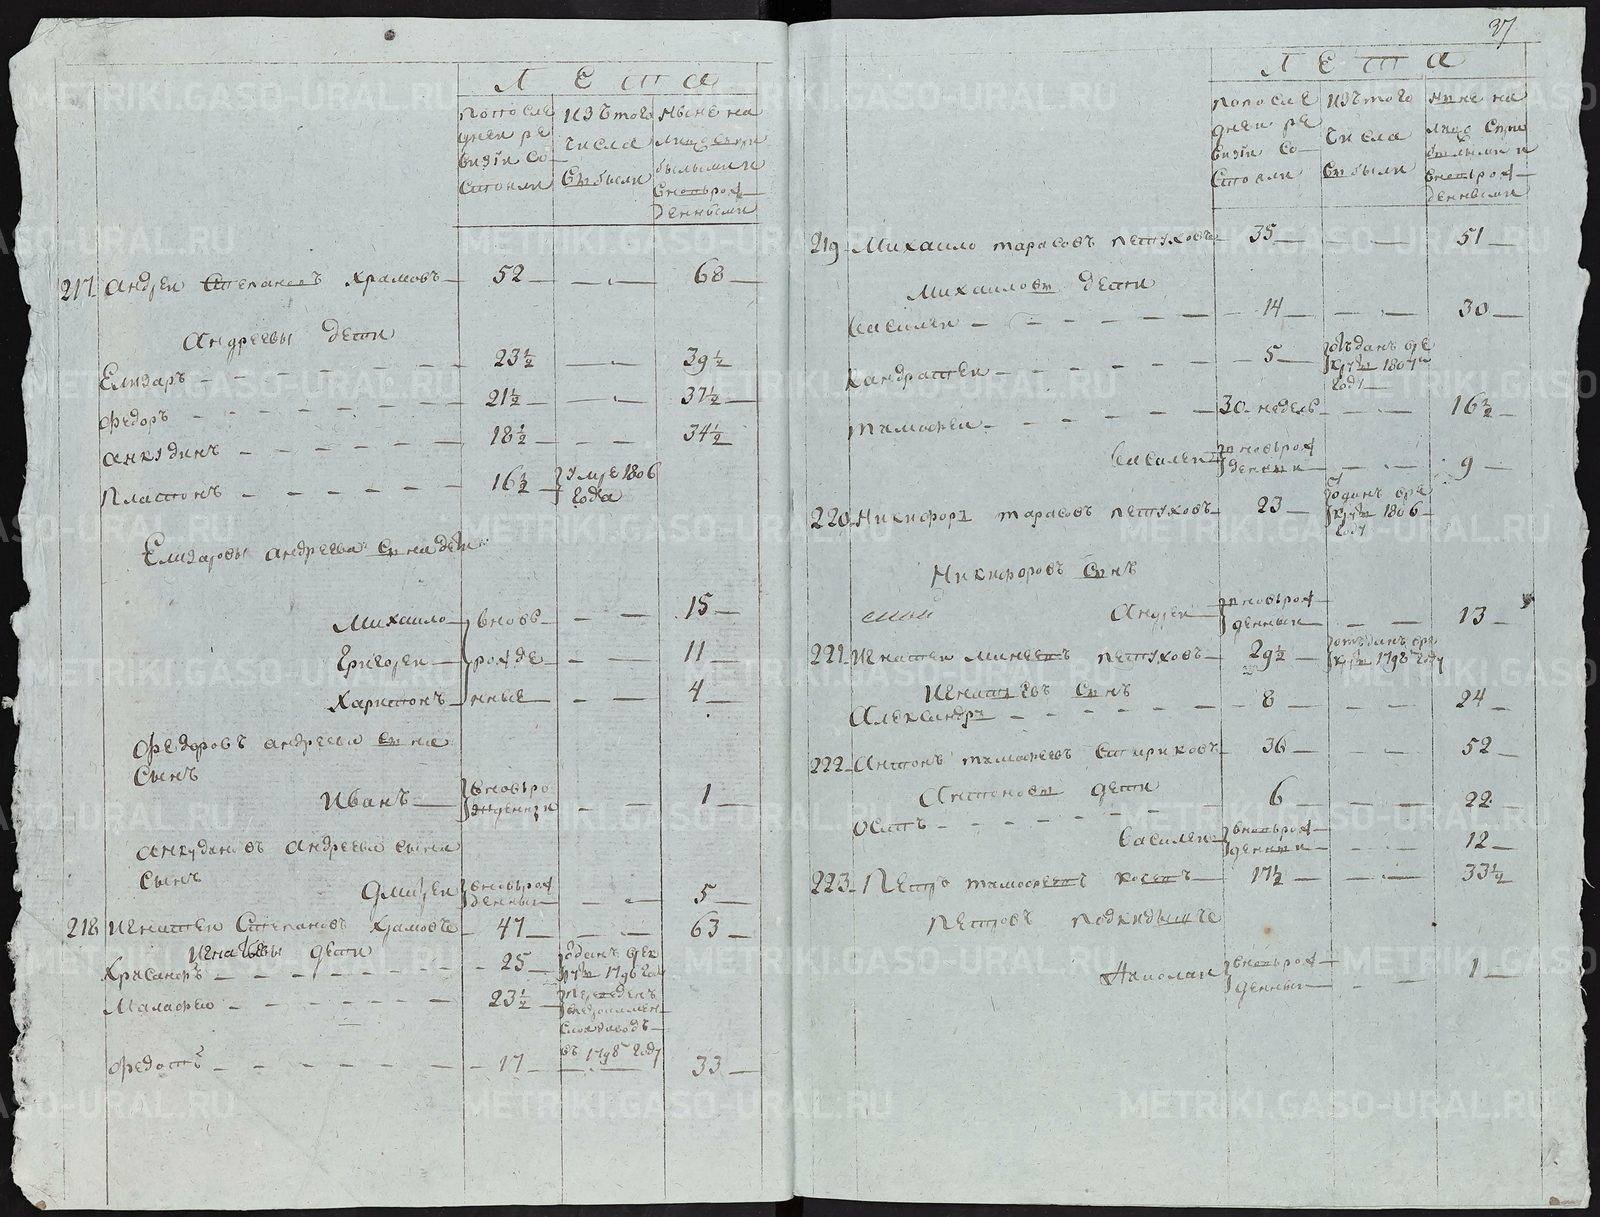 Лета
попосле изътого ныне на
дней ре числа лицо спри
визіи со былыми и
стояли выбыли сновьрож
денными
217 Андрей Степановъ Храмовъ 52 68
Андреевы дети
Елизаръ 23½ 39½
Федоръ 21½ 37½
Анкудинъ 18½ 34½
Платонъ 16½ умре 1806
года
Елизаровы Андреева сына дети
Михаило вновь 15
Григорей рожде 11
Харитонъ нные 4
Федоровъ Андреева сына
сынъ
Иванъ вновьро 1
жденный
Анкудиновъ Андреева сына
сынъ
Дмитрей вновьрож 5
денный
218 Игнатей Степановъ Храмовъ 47 63
Игнатьевы дети
Хрисанфъ 25 отданъ врек
руты 1796 году
Малафей 23½ переведенъ
заводъ
въ 1798 году
Федотъ 17 33
37
Лета
попосле изътого ныне на
дней ре числа лицо спри
визіи со былыми и
стояли выбыли сновьрож
денными
219 Михаило Тарасовъ Петуховъ 35 51
Михаиловы дети
Василей 14 30
Кандратей 5 отъданъ вре
круты 1807
году
Тимофей 30 недель 16½
Василей вновьрож 9
денный
220 Никифоръ Тарасовъ Петуховъ 23 отданъ вре
круты 1806
году
Никифоровъ сынъ
Андрей вновьрож 13
денный
221 Игнатей Минеевъ Петуховъ 29½ отъданъ вре
круты 1798 году
Игнатьевъ сынъ
Александръ 8 24
222 Антонъ Тимофеевъ Стариковъ 36 52
Антоновы дети
Осипъ 6 22
Василей вновьрож 12
денный
223 Петръ Тимофеевъ Косевъ 17½ 33½
Петровъ подкидышъ
Николай вновьрож 1
денный
METRIKI.GASO-URAL.RU